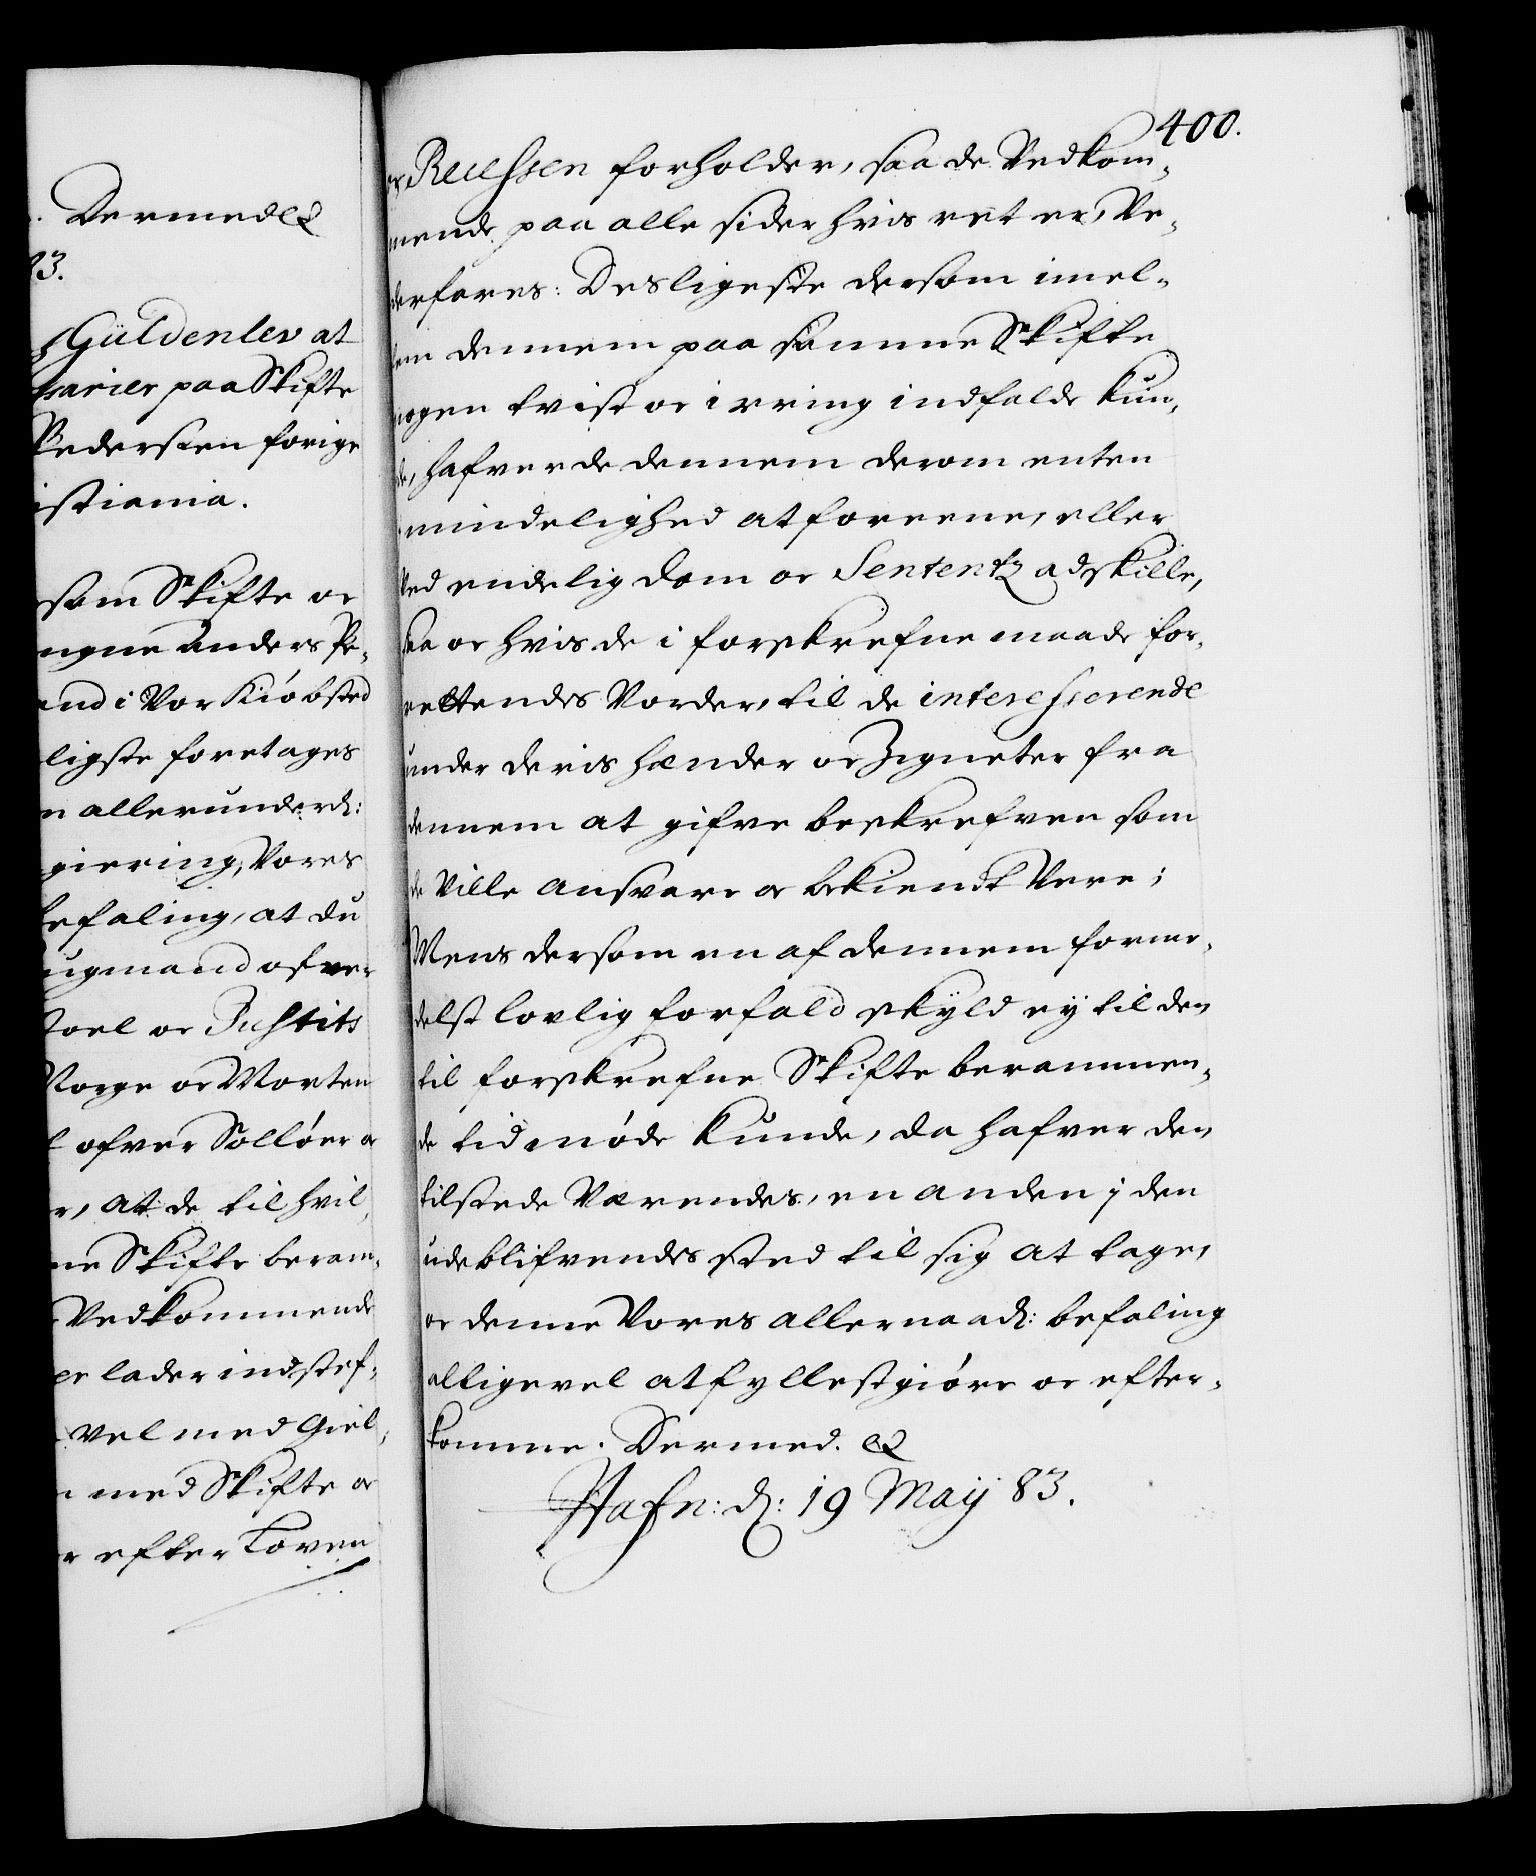 Dermed etc
83.
Güldenlev at
sarier paa Skifte
Pedersten forige
istiania.
som Skifte oc
ngne Anders Pe-
and i Vor Kiøbsted
ligste foretages
n allerunderd:
giering, Vores
befaling, at du
ugmand ofver
toel oc Justits
Norge oc Morten
l ofver Solløer oc
r, at de til hvil-
ne Skifte beram-
Vedkommende
er lader indstef-
vel med Giel-
n med Skifte oc
r efter Loven
400.
Recessen forholder, saa de Vedkom-
mende paa alle sider hvis ret er, Ve-
derfares: Desligeste dersom imel-
lem dennem paa samme Skifte
nogen tvist oc irring indfalde kun-
de, hafver de dennem derom enten
mindelighed at foreene, eller
Ved endelig dom oc Sententz adskille,
saa oc hvis de i forskrefne maade for-
rettendes Vorder, til de interesserende
under deris hænder oc Zigneter fra
dennem at gifve beskrefven som
de Ville ansvare oc bekiendt Vere;
Mens dersom en af dennem forme-
delst lovlig forfald skyld ey til den
til forskrefne Skifte berammen-
de tid møde kunde, da hafver den
tilstede Værendes, en anden j den
udeblifvendes sted til sig at tage,
oc denne Vores allernaad: befaling
alligevel at fyllestgiøre oc efter-
komme. Dermed. etc
Hafn: d: 19 Maij 83.